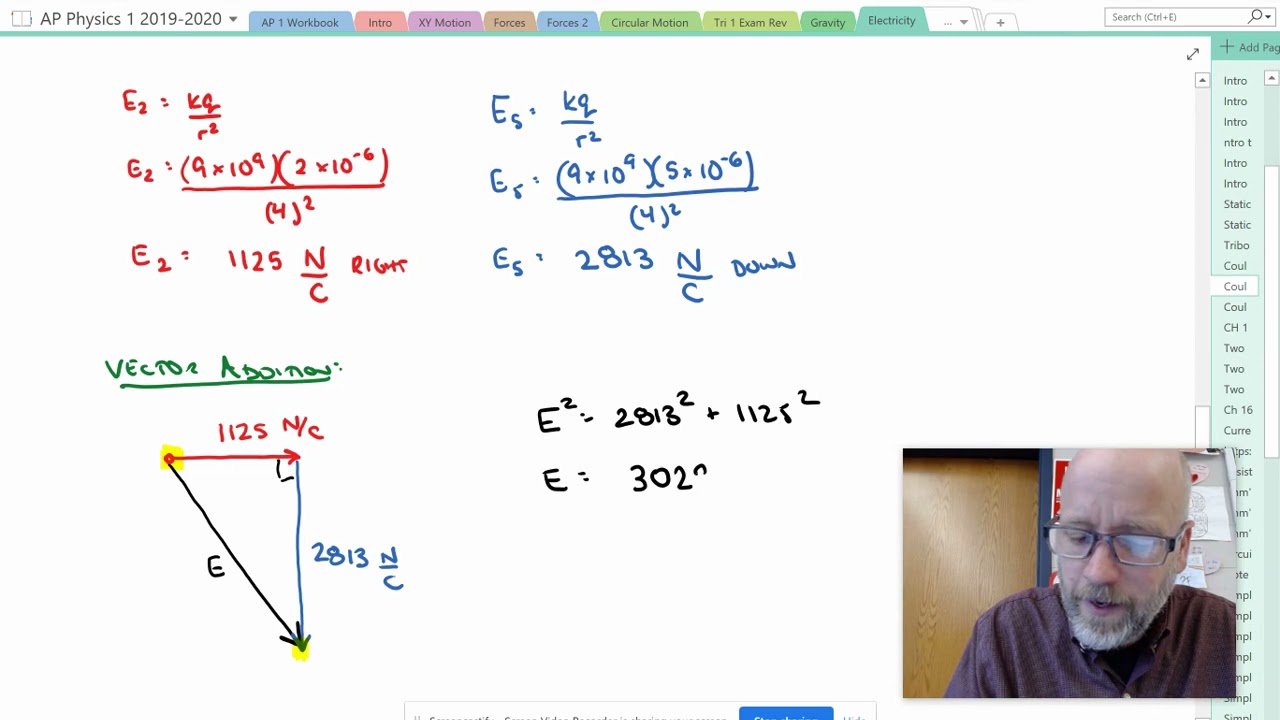 AP Physics 1 2019-2020
AP 1 Workbook Intro XY Motion Forces Forces 2 Circular Motion Tri 1 Exam Rev Gravity Electricity ... +
Search (Ctrl+E)
+ Add Pag
E₂ = kq/r²
E₂ = (9×10⁹)(2×10⁻⁶)/(4)²
E₂ = 1125 N/C RIGHT
E₅ = kq/r²
E₅ = (9×10⁹)(5×10⁻⁶)/(4)²
E₅ = 2813 N/C DOWN
VECTOR ADDITION:
1125 N/C
E
2813 N/C
E² = 2813² + 1125²
E = 302
Intro
Intro
Intro
ntro t
Intro
Intro
Static
Static
Tribo
Coul
Coul
Coul
CH 1
Two
Two
Two
Ch 16
Curre
Stop sharing
Hide